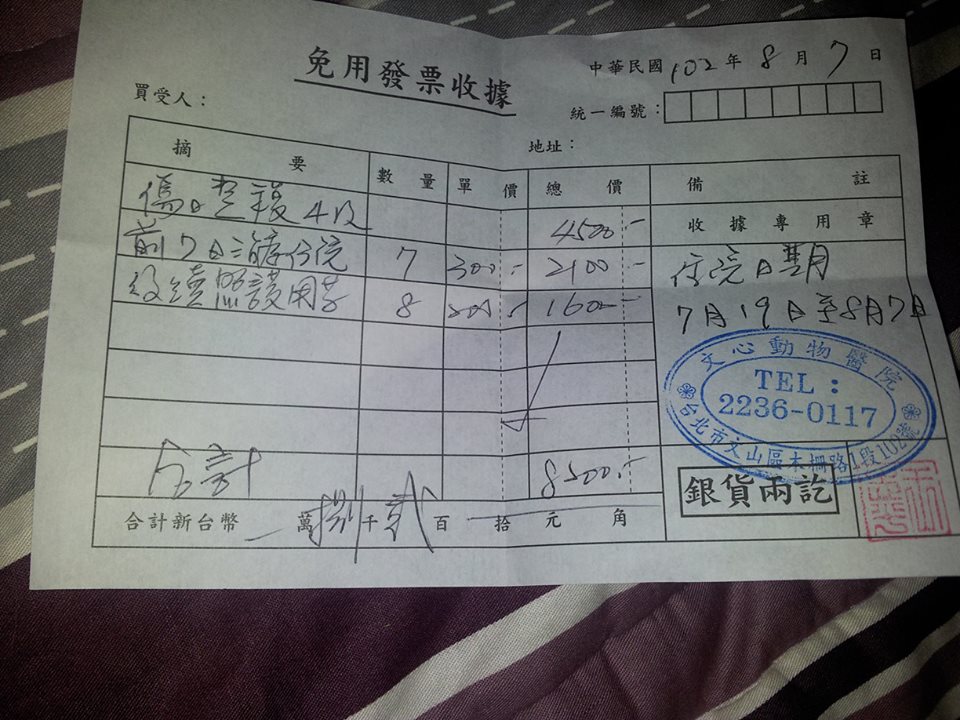 免用發票收據
中華民國 102 年 8 月 7 日
買受人：
統一編號：
地址：
摘要 數量 單價 總價 備註
4500.-
收據專用章
前7日 住院 7 300.- 2100.-
住院日期
後續照護 8 1600.-
7月19日至8月7日
文心動物醫院
TEL：
2236-0117
台北市文山區木柵路1段102號
合計 8200.-
銀貨兩訖
合計新台幣 萬 捌 千 貳 百 拾 元 角